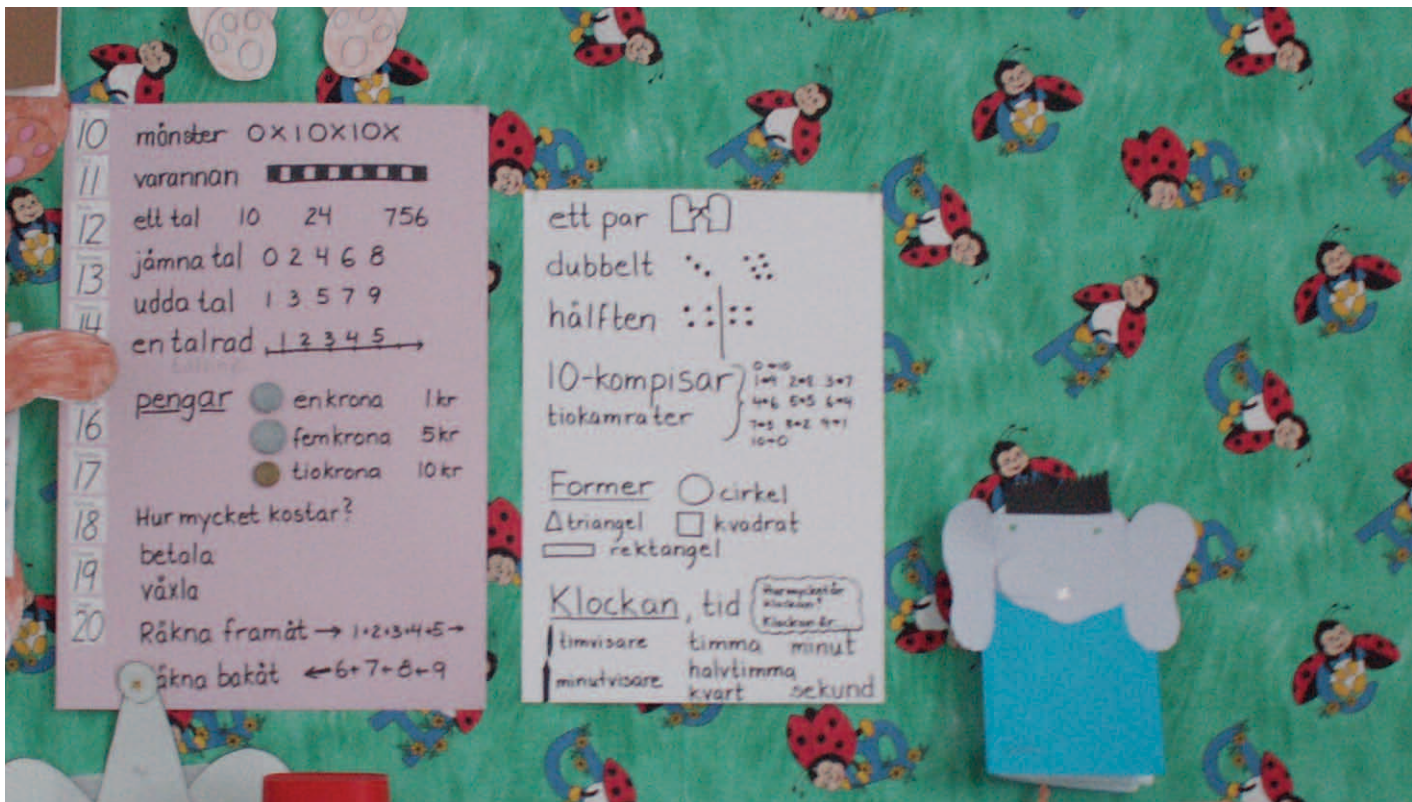 10
11
12
13
14
16
17
18
19
20
mönster 0X10X10X
varannan
ett tal 10 24 756
jämna tal 0 2 4 6 8
udda tal 1 3 5 7 9
en talrad 1 2 3 4 5
pengar en krona 1 kr
femkrona 5 kr
tiokrona 10 kr
Hur mycket kostar?
betala
växla
Räkna framåt → 1→2→3→4→5→
äkna bakåt ←6←7←8←9
ett par
dubbelt
hälften
10-kompisar
tiokamrater
Former cirkel
triangel kvadrat
rektangel
Klockan, tid
Hur mycket är
klockan?
Klockan är
timvisare timma minut
halvtimma
minutvisare
kvart sekund